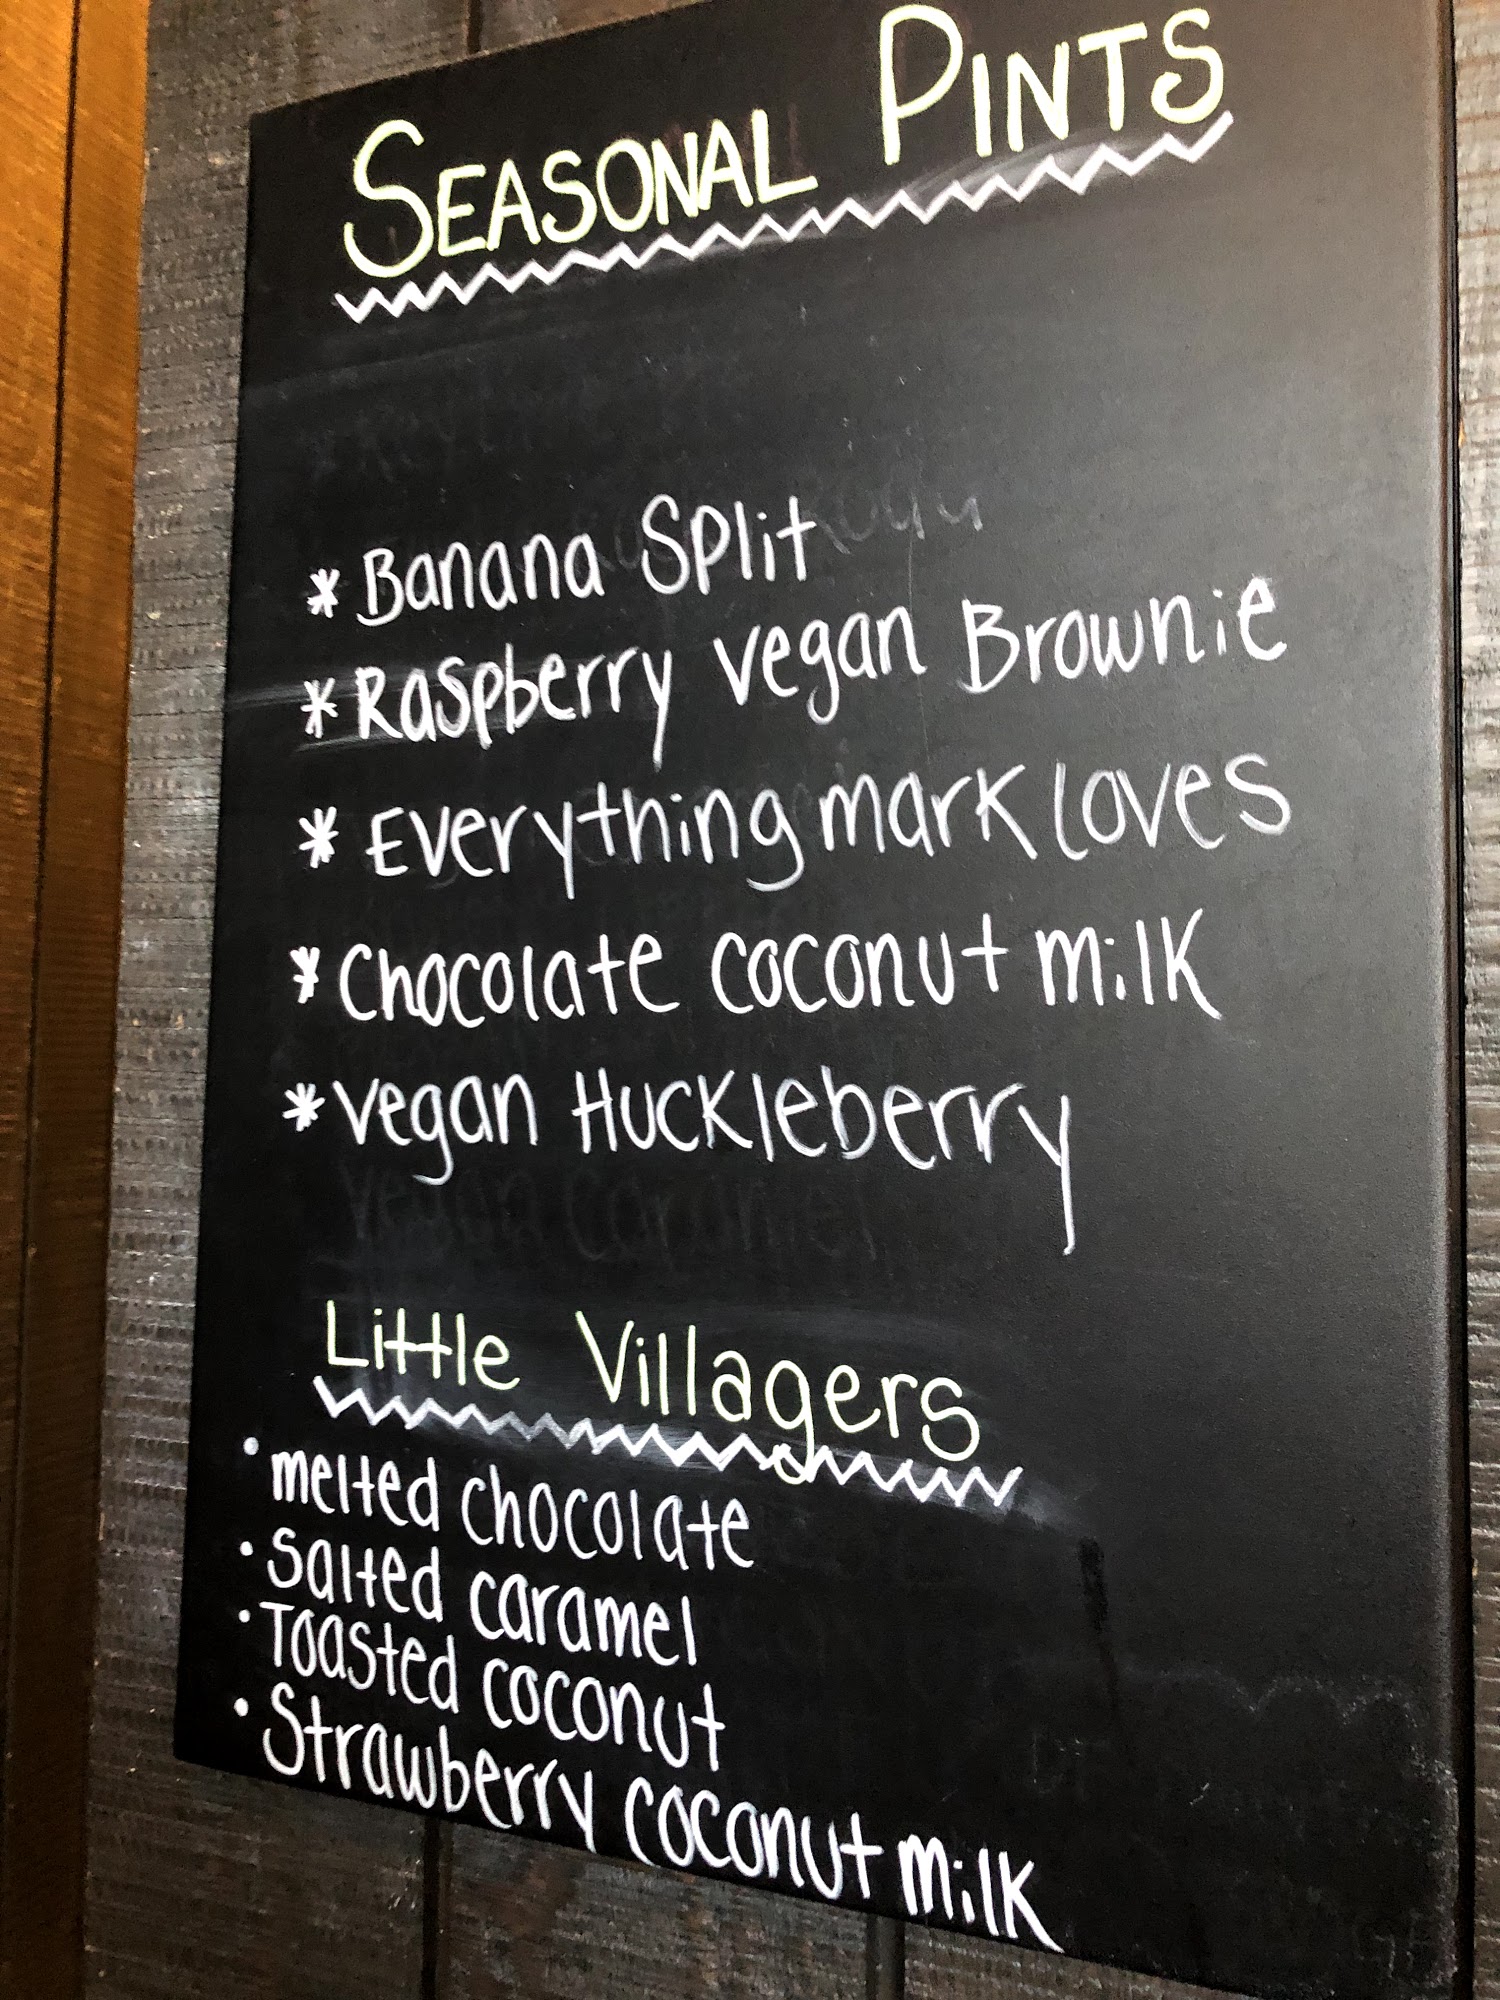 SEASONAL PINTS
* Banana Split
* Raspberry Vegan Brownie
* Everything mark loves
* Chocolate coconut milk
* vegan Huckleberry
vegan caramel
Little Villagers
• melted chocolate
• Salted caramel
• Toasted coconut
• Strawberry coconut milk